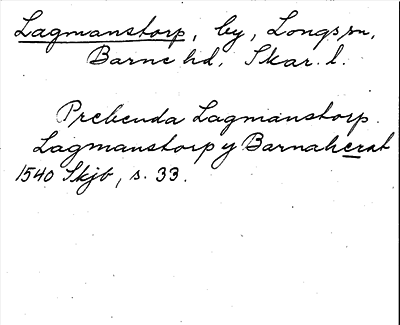 Lagmanstorp, by, Longs sn,
Barne hd, Skar. l.
Prebenda Lagmanstorp.
Lagmanstorp y Barnaherat
1540 Skjb, s. 33.